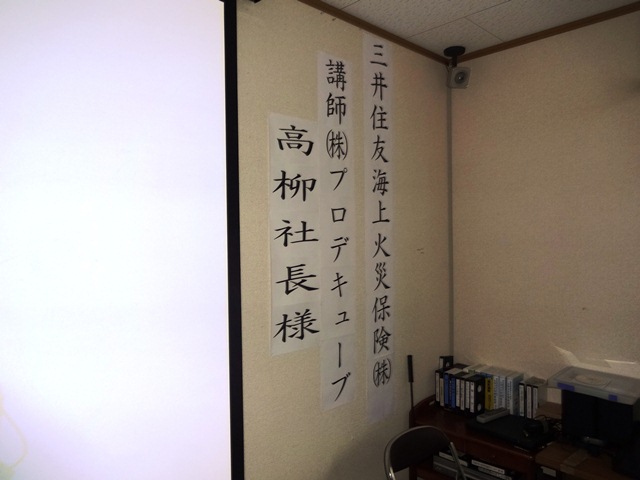 三井住友海上火災保険㈱
講師㈱プロデキューブ
高柳社長様